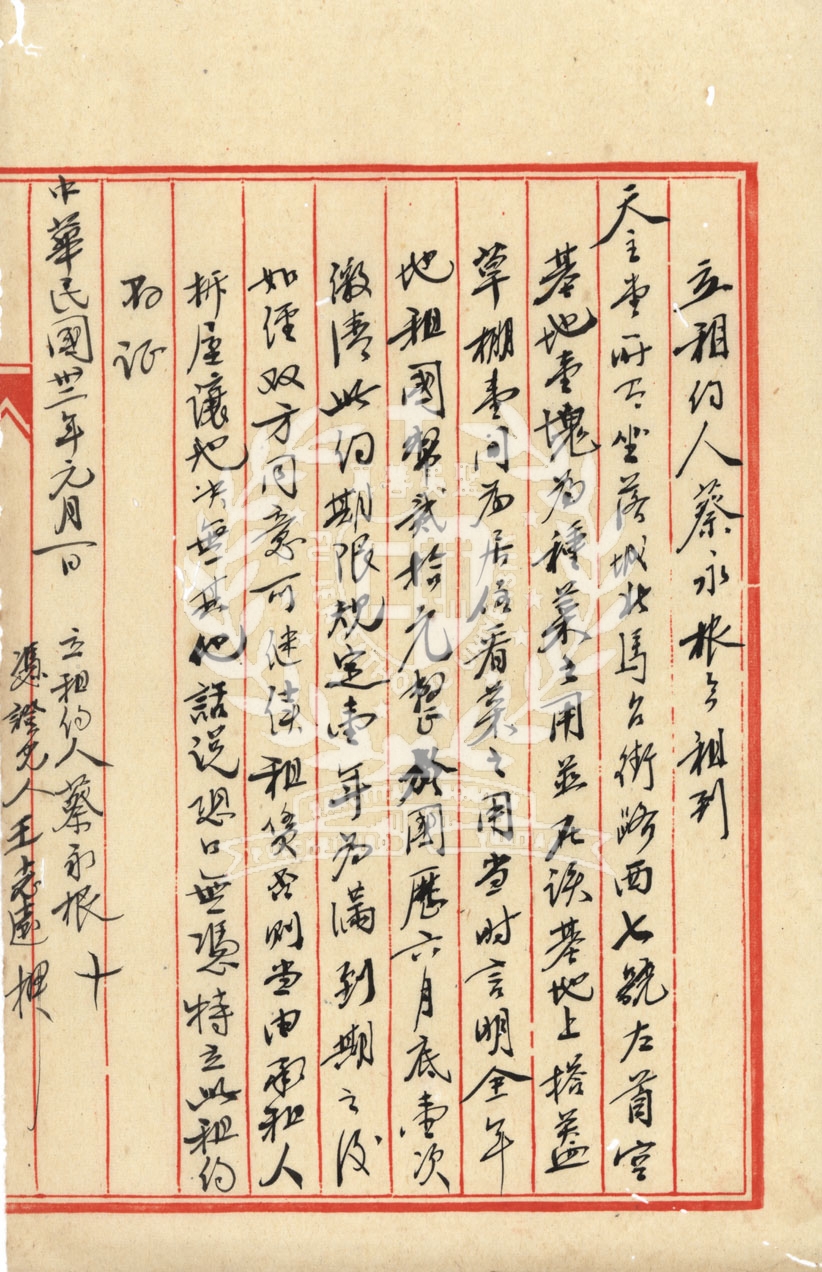 立租約人蔡永根今租到
天主堂所有坐落城北馬台街路西七號左首空
基地壹塊為種菜之用並在該基地上搭蓋
草棚壹间為居住看菜之用当时言明全年
地租國幣贰拾元整於國曆六月底壹次
缴清此约期限规定壹年为滿到期之後
如經双方同意可继续租赁否則当由承租人
拆屋讓地决無其他話说恐口無憑特立此租约
为证
中華民國卅二年元月一日
立租约人蔡永根 十
憑證見人王志遠 押